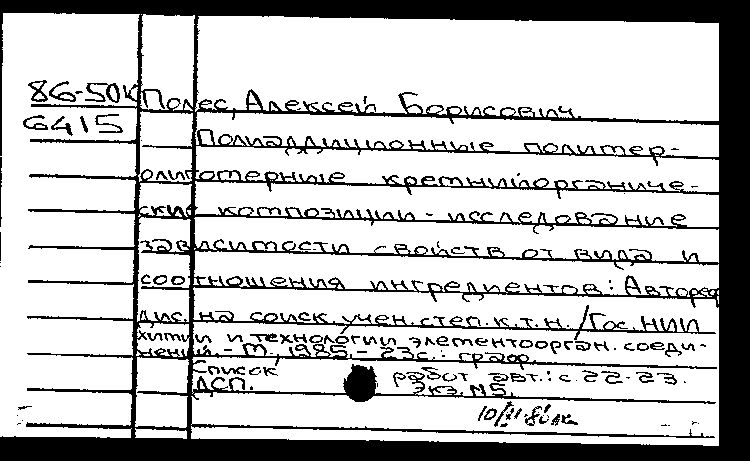 86-50К Полес, Алексей Борисович.
6415
Полиаддиционные полимер-
олигомерные кремнийорганиче-
ские композиции - исследование
зависимости свойств от вида и
соотношения ингредиентов: Автореф
дис. на соиск. учен. степ. к.т.н. / Гос. НИИ
химии и технологии элементоорган. соеди-
нений. - М., 1985. - 23с.: граф.
Список работ авт.: с. 22-23.
ДСП. Экз. №5.